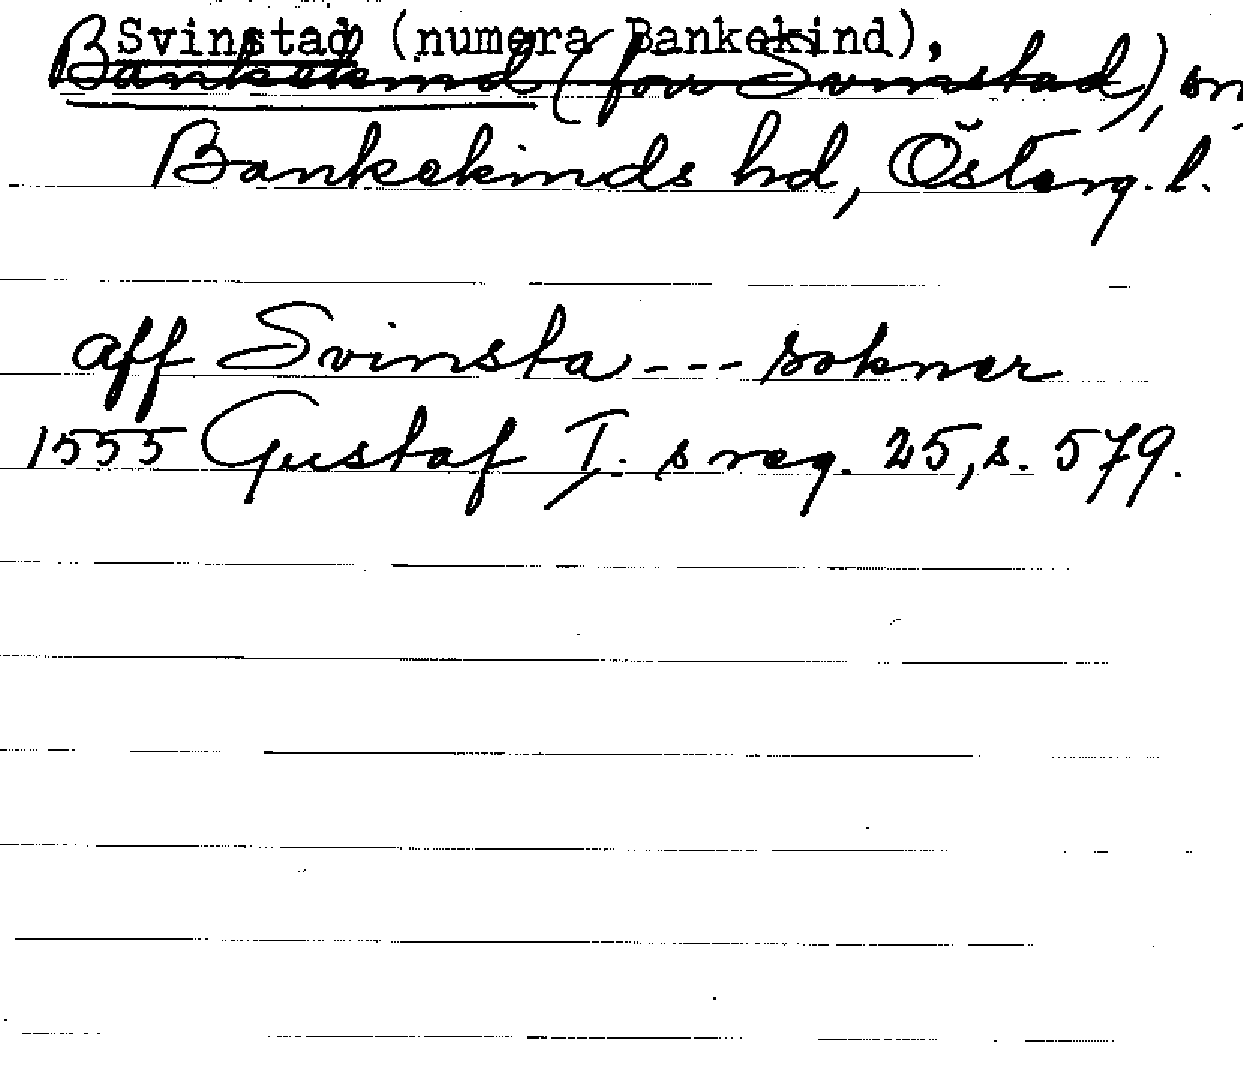 Svinstad (numera Bankekind),
Bankekind (förr Svinstad), sn,
Bankekinds hd, Österg. l.
aff Svinsta --- soknar
1555 Gustaf I. s reg. 25, s. 579.